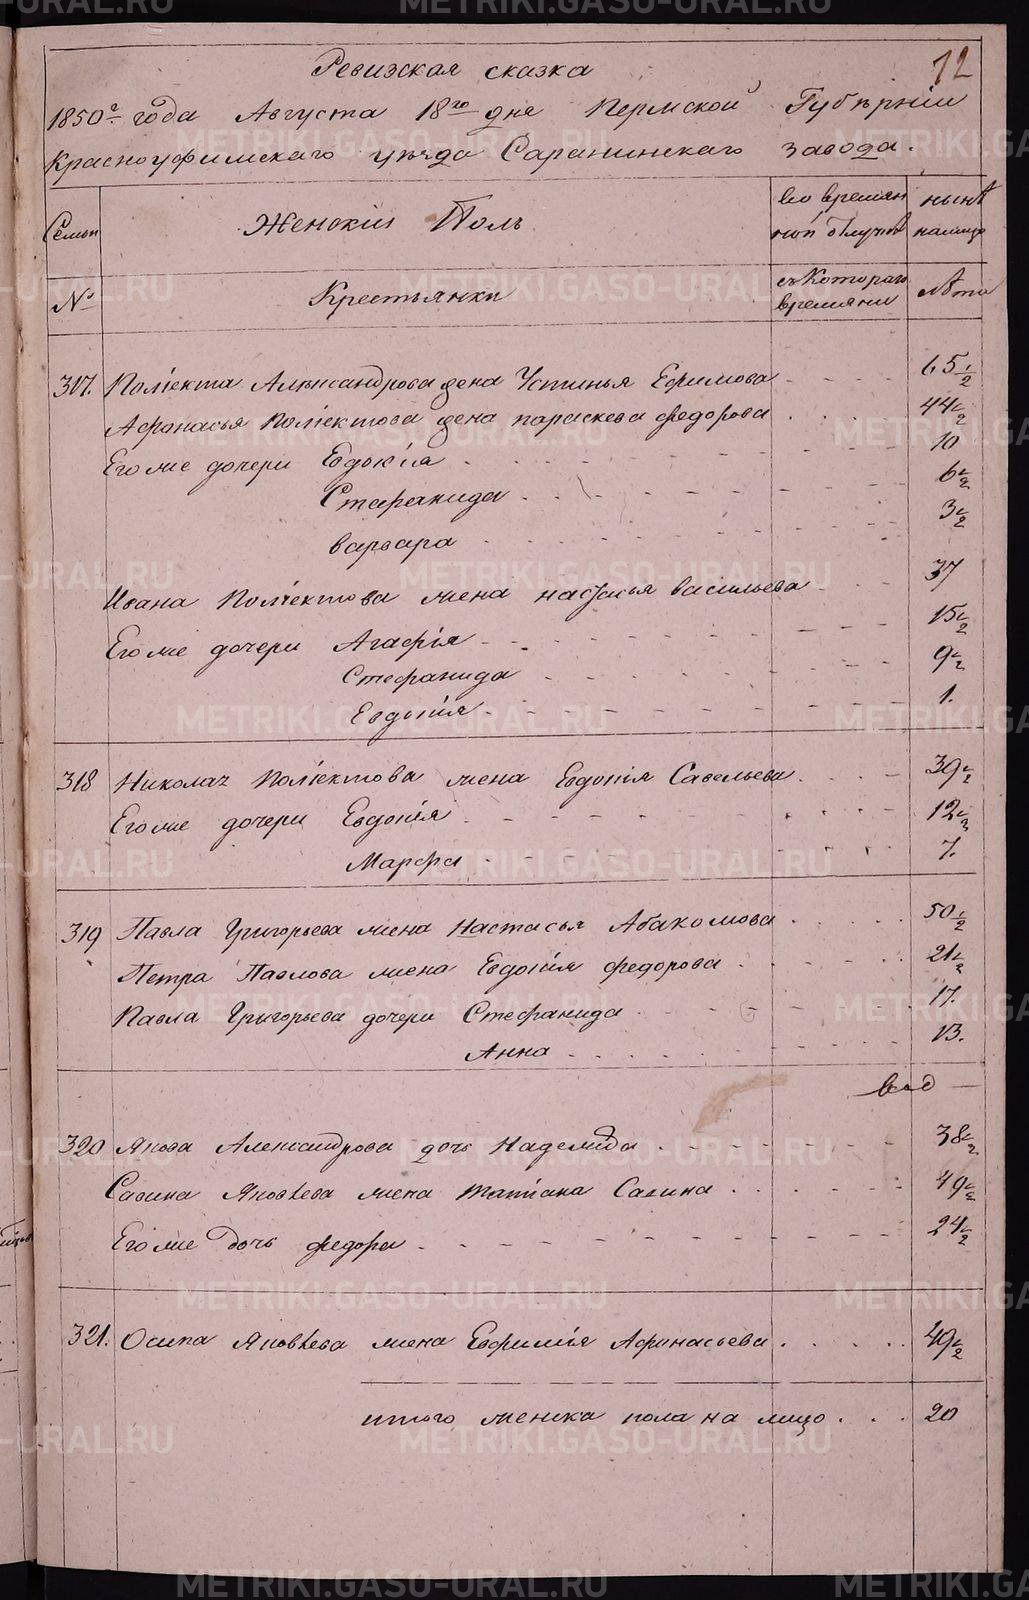 72
Ревизская сказка
1850го года Августа 18го дня Пермской Губѣрнiи
Красноуфимскаго уѣзда Саранинскаго завода.
Семьи Женскiй Полъ во времян ной отлучкѣ нынѣ налицо
№ Крестьянки съ Котораго времяни лѣта
317. Полiекта Александрова жена Устинья Ефимова 65 1/2
Афонасья Полiектова жена параскева федорова 44 1/2
Его же дочери Евдокiя 10
Стефанида 6 1/2
варвара 3 1/2
Ивана Полiектова жена настасья васильева 37
Его же дочери Агафiя 15 1/2
Стефанида 9 1/2
Евдокiя 1.
318 Николая Полiектова жена Евдокiя Савельева 39 1/2
Его же дочери Евдокiя 12 1/2
Марфа 7.
319 Павла Григорьева жена Настасья Абакомова 50 1/2
Петра Павлова жена Евдокiя федорова 21 1/2
Павла Григорьева дочери Стефанида 17.
Анна 13.
320 Якова Александрова дочь Надежда 38 1/2
Савина Яковлева жена татiана Савина 49 1/2
Его же дочь федора 24 1/2
321. Осипа Яковлева жена Евфимья Афонасьева 49 1/2
итого женска пола на лицо 20
METRIKI.GASO-URAL.RU